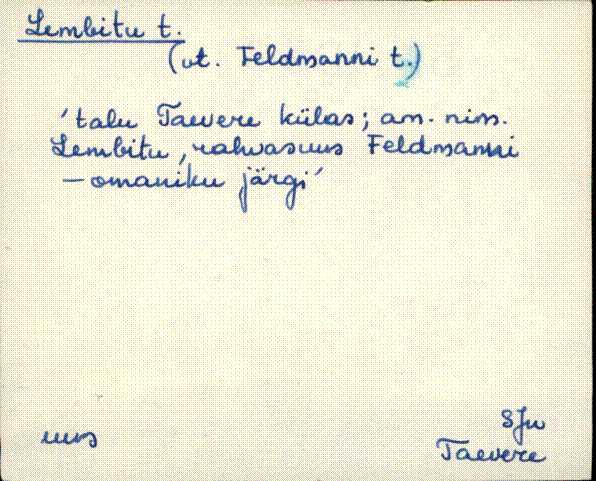 Lembitu t.
(vt. Feldmanni t.)
'talu Taevere külas; am. nim.
Lembitu, rahvasuus Feldmanni
– omaniku järgi'
uus
SJn
Taevere